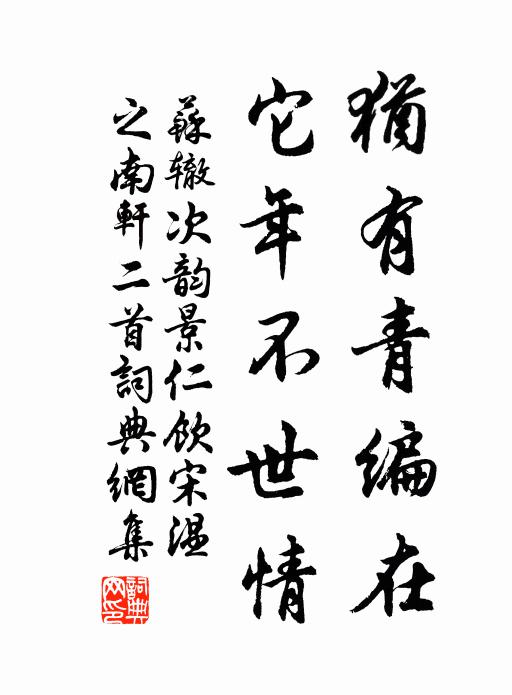 猶有青编在
它年不世情
蘇辙次韵景仁飲宋温
之南軒二首詞典網集
詞典
网印